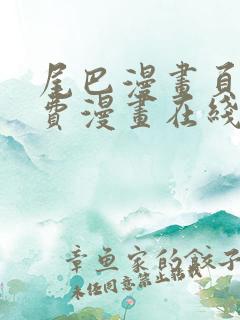 尾巴漫畫頁
費漫畫在綫
章魚家的餃子
未经同意禁止转载